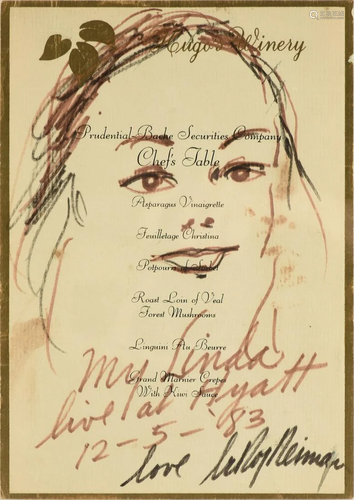 Hugo's Winery
Prudential-Bache Securities Company
Chef's Table
Asparagus Vinaigrette
Feuilletage Christina
Potpourri of
Roast Loin of Veal
Forest Mushrooms
Linguini Au Beurre
Grand Marnier Crepes
With Kiwi Sauce
My Linda
live at Hyatt
12-5-83
love LeRoy Neiman